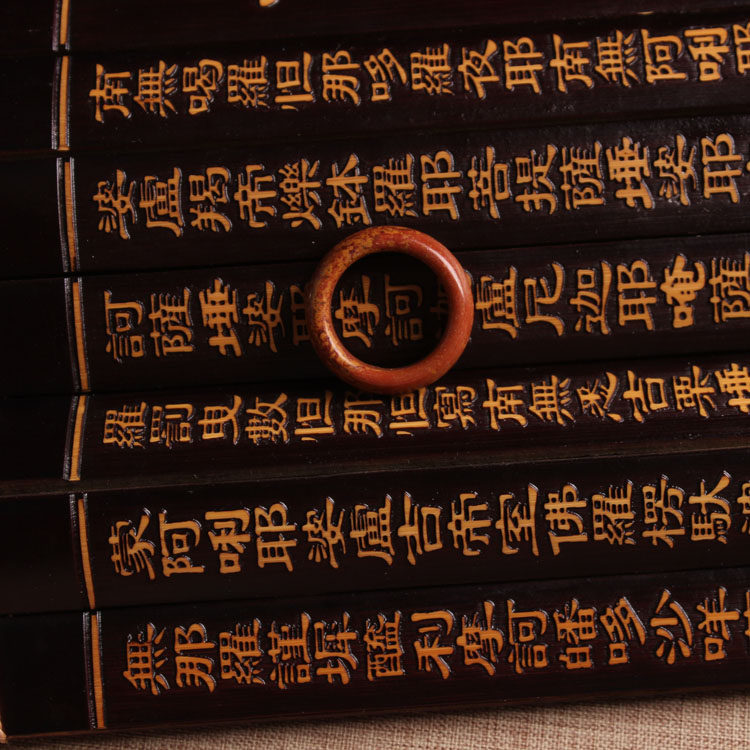 南無喝羅怛那哆羅夜耶南無阿唎
婆盧揭帝爍缽羅耶菩提薩埵婆耶
訶薩埵婆耶摩訶盧尼迦耶唵薩
羅罰曳數怛那怛寫南無悉吉栗埵
蒙阿唎耶婆盧吉帝室佛羅楞馱
無那羅謹墀醯利摩訶皤哆沙咩